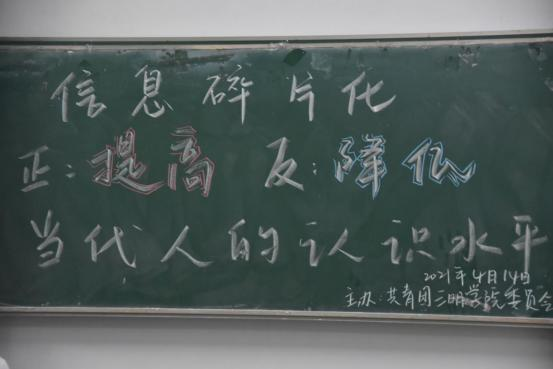 信息碎片化
正：提高 反：降低
当代人的认识水平
2021年4月14日
主办：共青团三明学院委员会